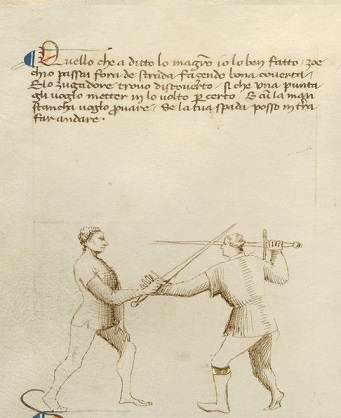 Quello che a ditto lo magr̃o io lo ben fatto / zoe
chio passai fora de strada façendo bona coverta /
E lo zugadore trovo discoverto / si che una punta
gli voglo metter in lo volto p certo / E cũ la man
stancha voglo p̱vare / se la tua spada posso in tera
far andare ·